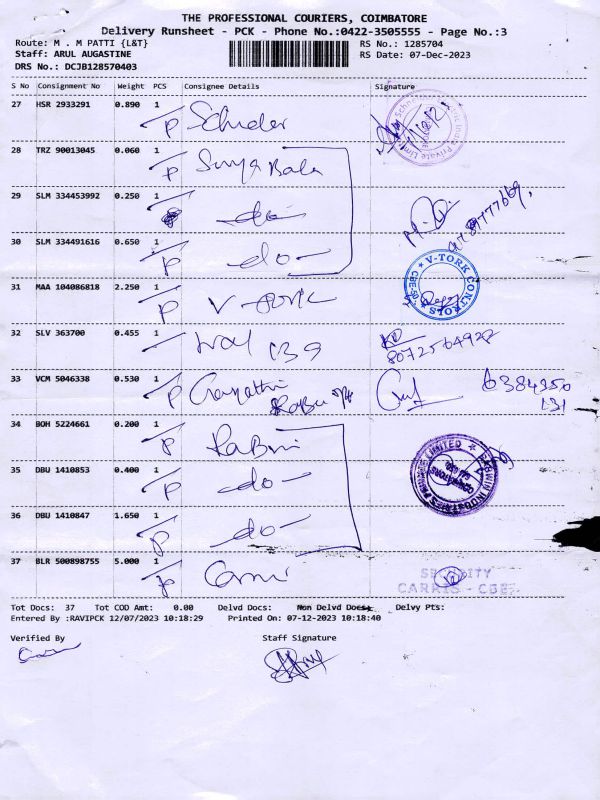 THE PROFESSIONAL COURIERS, COIMBATORE
Delivery Runsheet - PCK - Phone No.:0422-3505555 - Page No.:3
Route: M . M PATTI {L&T} RS No.: 1285704
Staff: ARUL AUGASTINE RS Date: 07-Dec-2023
DRS No.: DCJB128570403
S No Consignment No Weight PCS Consignee Details Signature
27 HSR 2933291 0.890 1
P
28 TRZ 90013045 0.060 1 Surya Bala
P
29 SLM 334453992 0.250 1 -do-
30 SLM 334491616 0.650 1 -do-
P
V-TORK CONTROLS
31 MAA 104086818 2.250 1 V-TORK
P
32 SLV 363700 0.455 1
8072564928
33 VCM 5046338 0.530 1 Gayathri
P
6384350
131
34 BOH 5224661 0.200 1
P
35 DBU 1410853 0.400 1 -do-
P
36 DBU 1410847 1.650 1 -do-
P
37 BLR 500898755 5.000 1
P
SECURITY
CARRIS - CBE
Tot Docs: 37 Tot COD Amt: 0.00 Delvd Docs: Non Delvd Docs: Delvy Pts:
Entered By :RAVIPCK 12/07/2023 10:18:29 Printed On: 07-12-2023 10:18:40
Verified By Staff Signature